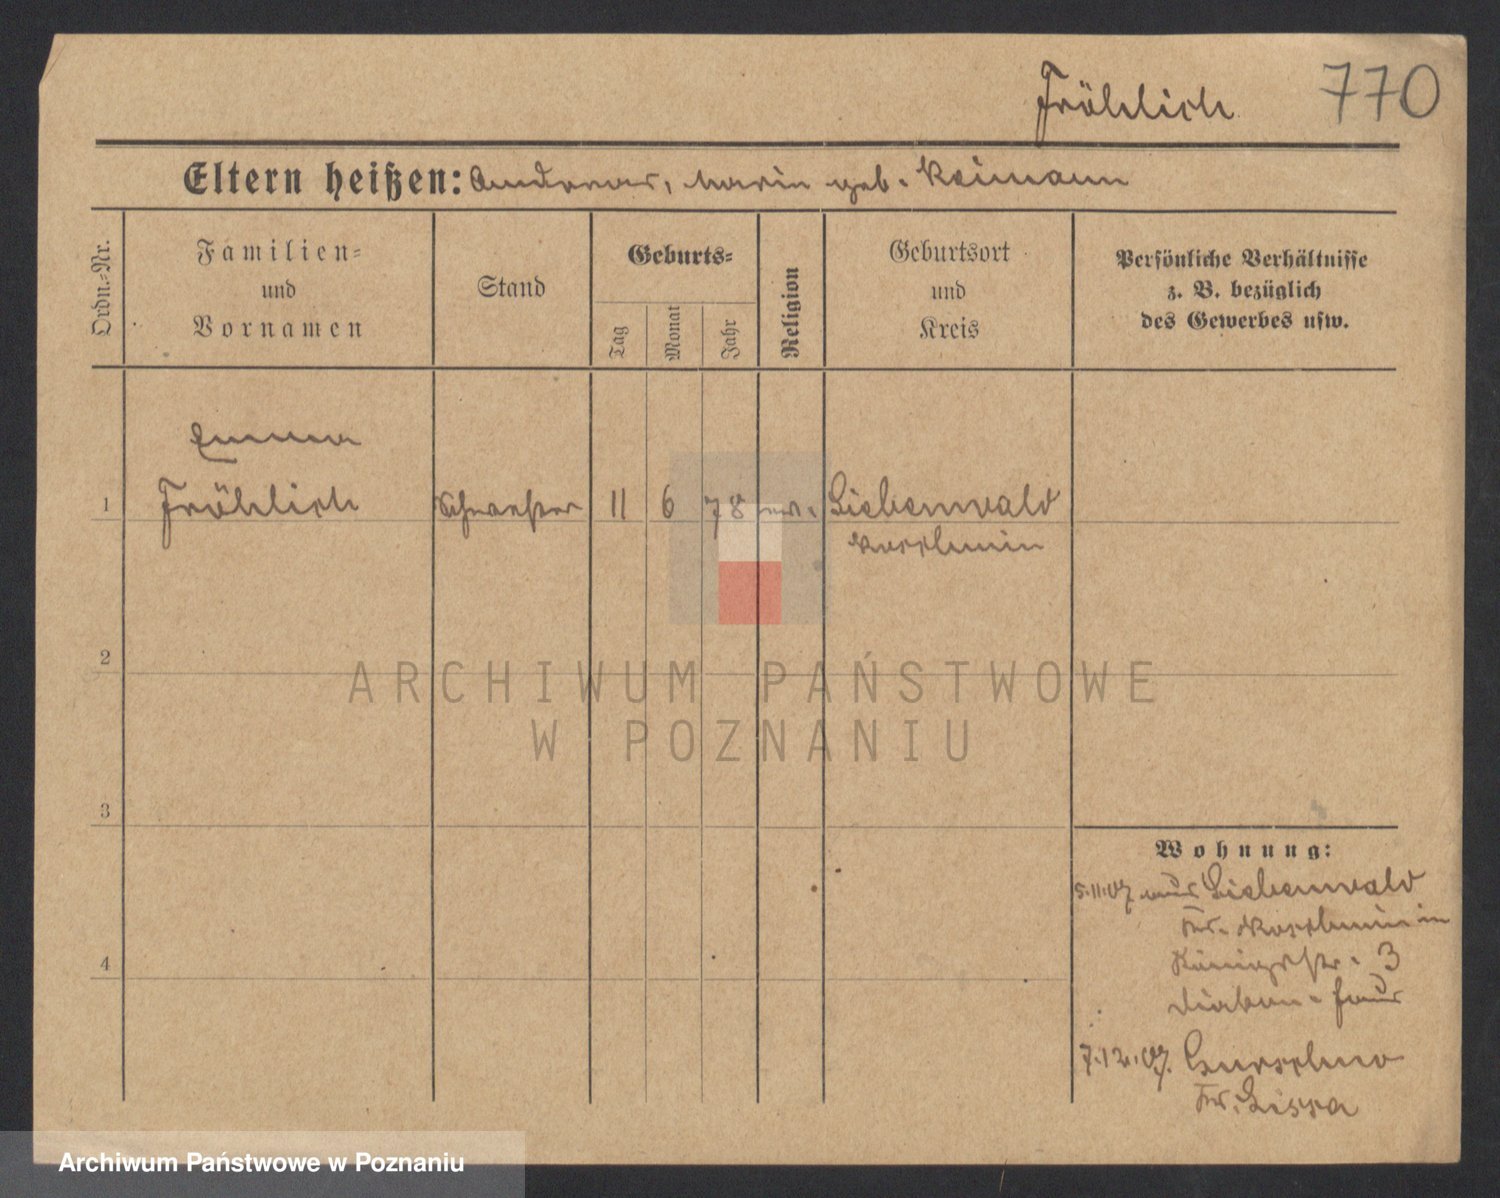 Fröhlich 770
Eltern heißen: Andreas, Maria geb. Reimann
Ordn.-Nr.
Familien-
und
Vornamen
Stand
Geburts-
Tag
Monat
Jahr
Religion
Geburtsort
und
Kreis
Persönliche Verhältnisse
z. B. bezüglich
des Gewerbes usw.
Emma
1 Fröhlich Schwester 11 6 78 ev. Liebenwald
Koschmin
2
3
4
Wohnung:
5.11.07 aus Liebenwald
Kr. Koschmin in
Königstr. 3
Diakon. Haus
7.12.07.
Kr. Lissa
ARCHIWUM PAŃSTWOWE
W POZNANIU
Archiwum Państwowe w Poznaniu